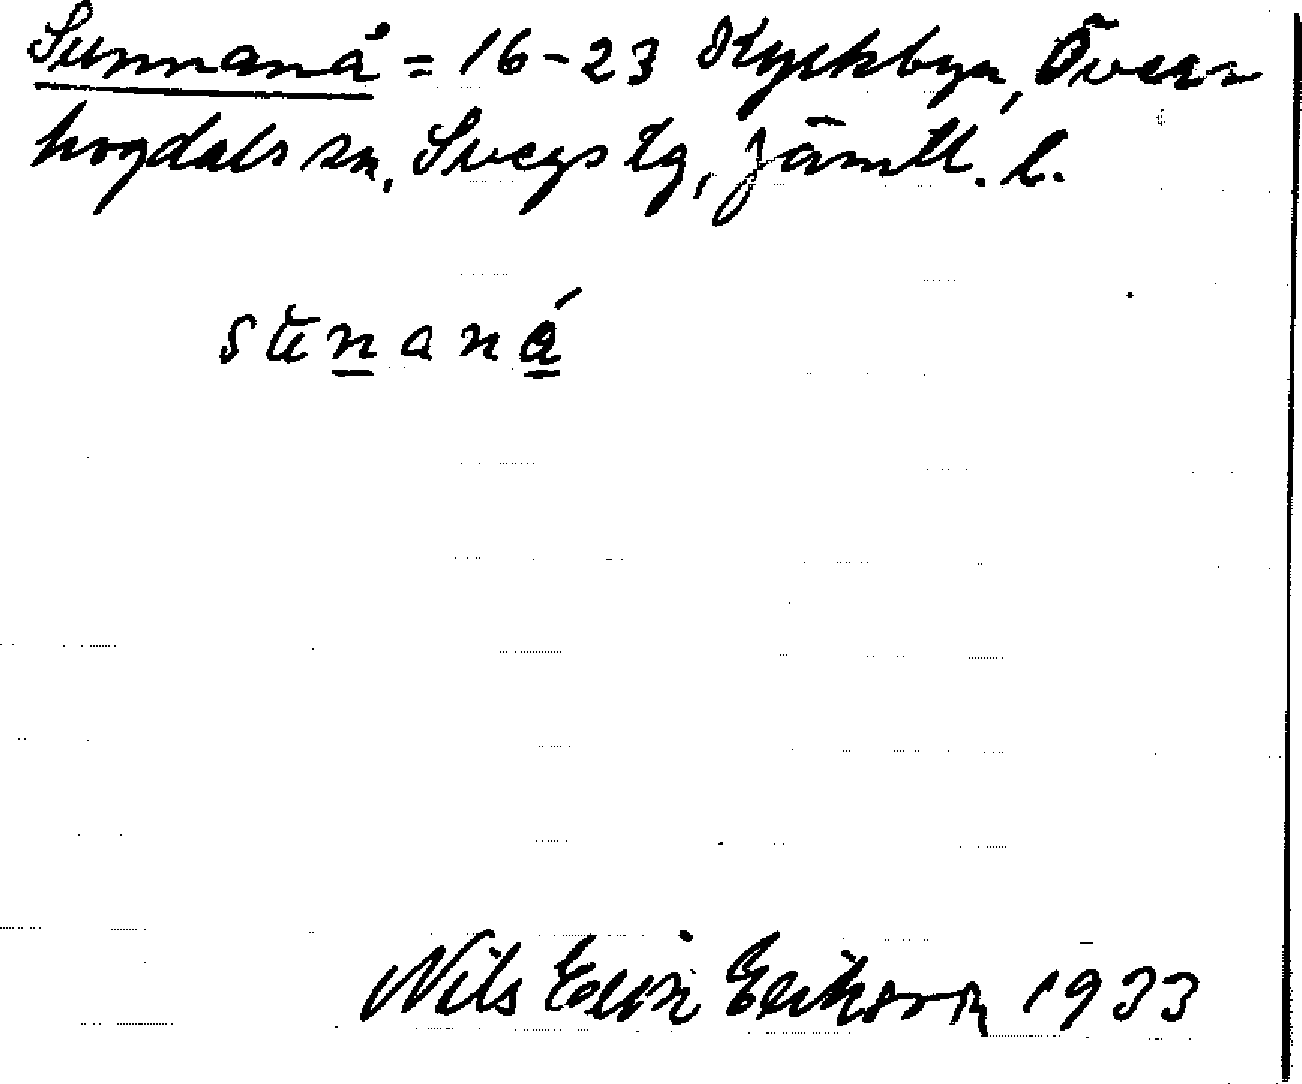 Sunnanå = 16-23 Kyrkbyn, Över-
hogdals sn, Svegs tg, Jämtl. l.
Nils Erik Erikson 1933